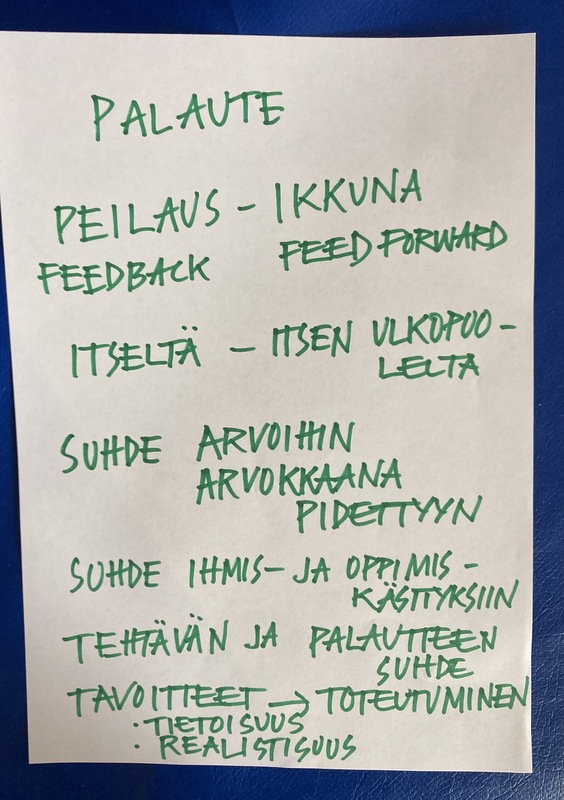 PALAUTE
PEILAUS - IKKUNA
FEEDBACK FEED FORWARD
ITSELTÄ - ITSEN ULKOPUO-
LELTA
SUHDE ARVOIHIN
ARVOKKAANA
PIDETTYYN
SUHDE IHMIS- JA OPPIMIS-
KÄSITYKSIIN
TEHTÄVÄN JA PALAUTTEEN
SUHDE
TAVOITTEET → TOTEUTUMINEN
· TIETOISUUS
· REALISTISUUS